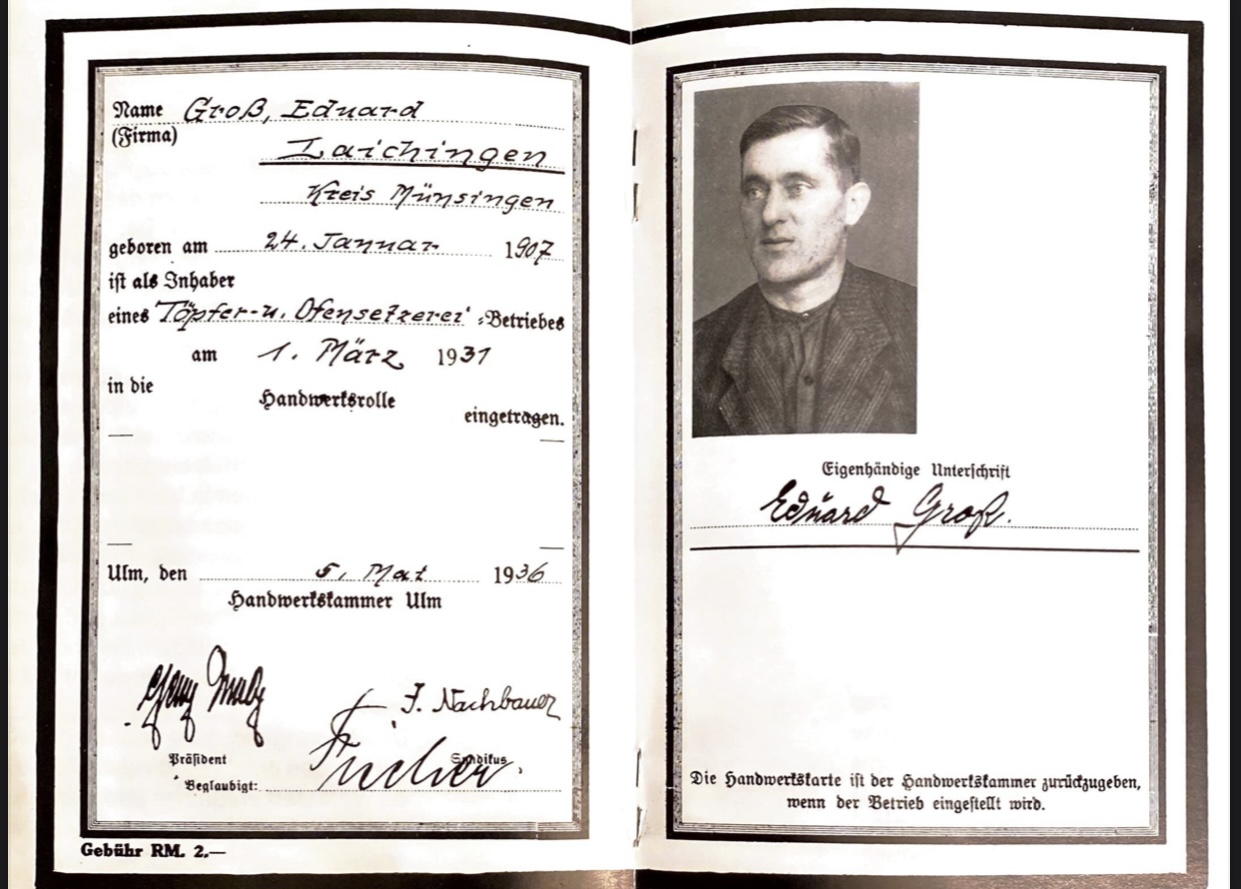 Name Groß, Eduard
(Firma)
Laichingen
Kreis Münsingen
geboren am 24. Januar 1907
ist als Inhaber
eines Töpfer- u. Ofensetzerei -Betriebes
am 1. März 1931
in die
Handwerksrolle
eingetragen.
Ulm, den 5. Mai 1936
Handwerkskammer Ulm
J. Nachbauer
Präsident Syndikus
Beglaubigt:
Gebühr RM. 2.—
Eigenhändige Unterschrift
Eduard Groß.
Die Handwerkskarte ist der Handwerkskammer zurückzugeben,
wenn der Betrieb eingestellt wird.